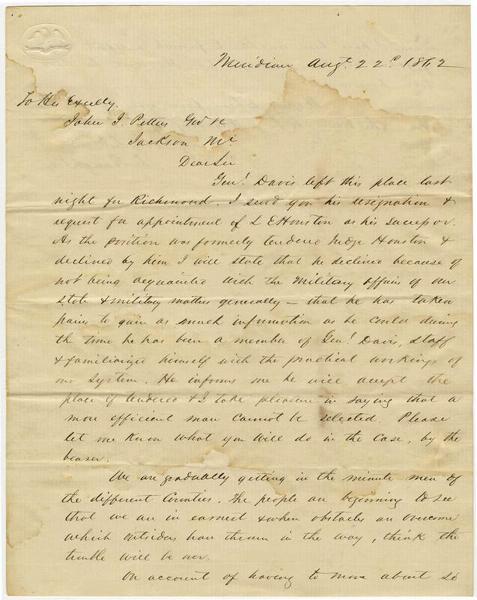 Meridian Augt 22d 1862
To His Exclly.
John J. Pettus Gov &c
Jackson Mi
Dear Sir
Genl Davis left this place last
night for Richmond. I send you his resignation &
request for appointment of L E Houston as his successor.
As the position was formerly tendered Judge Houston &
declined by him I will state that he declined because of
not being acquainted with the Military affairs of our
State & military matters generally — that he has taken
pains to gain as much information as he could during
the time he has been a member of Genl Davis, staff
& familiarize himself with the practical workings of
our System. He informs me he will accept the
place if tendered & I take pleasure in saying that a
more efficient man cannot be selected. Please
let me know what you will do in the case, by the
bearer.
We are gradually getting in the minute men of
the different Counties. The people are beginning to see
that we are in earnest & when obstacles are overcome
which outsiders have thrown in the way, think the
trouble will be over.
On account of having to move about so